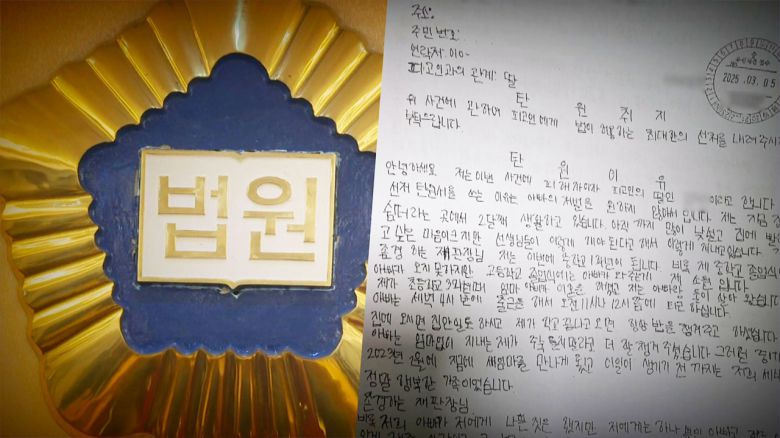 법원
주소:
주민번호:
연락처: 010-
피고인과의 관계: 딸
2025.03.05
탄 원 취 지
위 사건에 관하여 피고인에게 법이 허용하는 최대한의 선처를 내려주시
부탁드립니다.
탄 원 이 유
안녕하세요 저는 이번 사건에 피해자이자 피고인의 딸인 이라고 합니다
제가 탄원서를 쓰는 이유는 아빠의 처벌을 원하지 않아서입니다. 저는 지금
쉼터라는 곳에서 2달째 생활하고 있습니다. 아직까지 많이 낯설고 집에
고 싶은 마음이 크지만 선생님들이 이렇게 해야된다고 해서 이렇게 지내고있습니다
존경하는 재판장님 저는 이번에 중학교 1학년이 됩니다. 비록 제 초등학교 졸업식
아빠가 오지 못하지만 고등학교 졸업식에는 아빠가 와주는게 제 소원입니다
제가 초등학교 2학년때 엄마 아빠가 이혼을 하셨고 저는 아빠랑 둘이 살아 왔습니
아빠는 새벽 4시 반에 출근을 해서 오전 11시나 12시 쯤에 퇴근하십니다
집에 오시면 집안일도 하시고 제가 학교 끝나고 오면 항상 밥을 챙겨주고 하셨습니
아빠는 엄마없이 지내는 제가 더 잘 챙겨 주셨습니다 그러던 중
2023년 2월에 집에 새엄마를 만나게 됐고 이일이 생기기 전까지는 저희 세식
정말 행복한 가족이었습니다
존경하는 재판장님
비록 저희 아빠가 저에게 나쁜 짓은 했지만 저에게는 하나뿐인 아빠이고